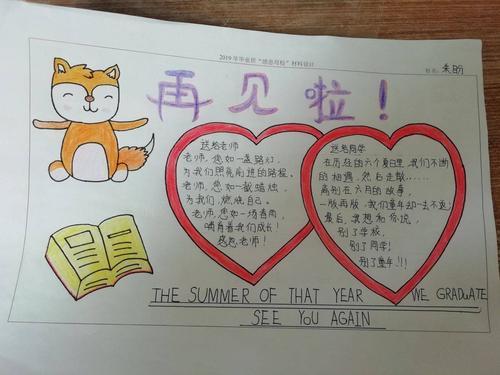 2019年毕业班“感恩母校”材料设计
再见啦！
送给老师
老师，您如一盏路灯，
为我们照亮前进的路程。
老师，您如一截蜡烛，
为我们，燃烧自己。
老师，您如一场春雨，
哺育着我们成长！
感恩老师！
送给同学
在历经的六个夏日里，我们不断
的相遇，然后走散……
离别在六月的故事，
一版再版，我们童年却一去不返！
最后，我想和你说，
别了学校，
别了同学！
别了童年!!!
THE SUMMER OF THAT YEAR WE GRADUATE
SEE YOU AGAIN